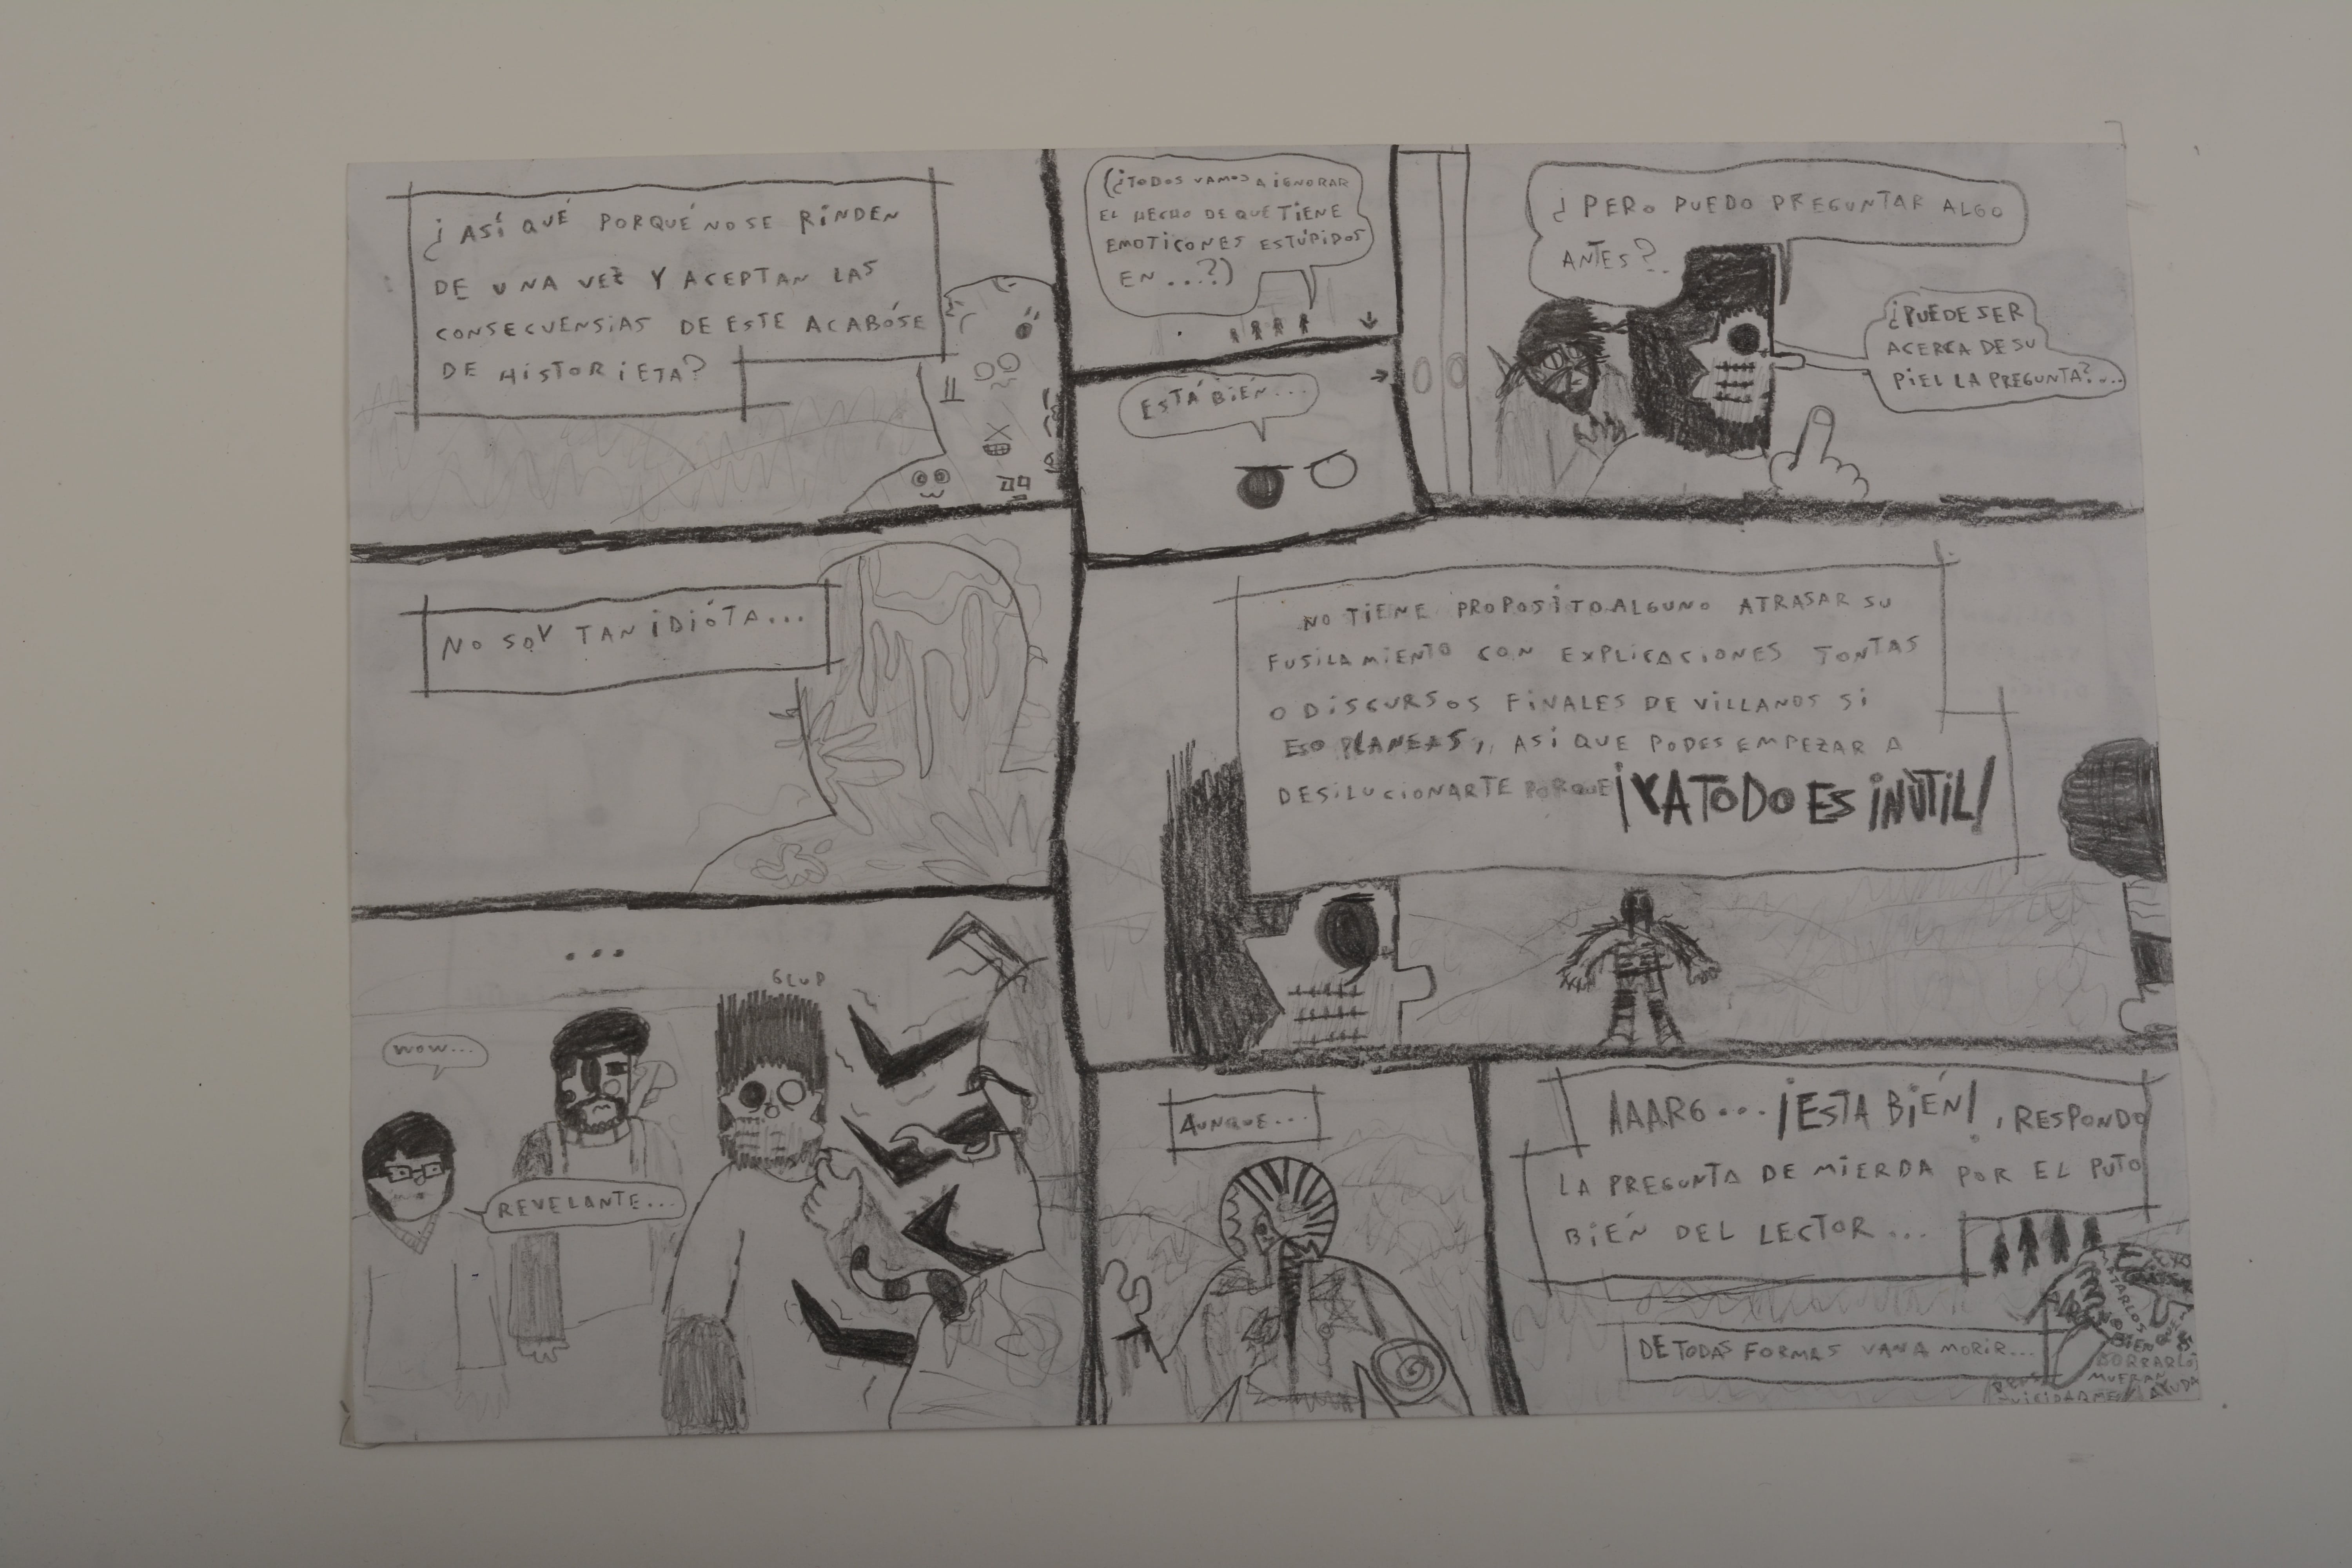 ¿ASÍ QUÉ PORQUÉ NO SE RINDEN
DE UNA VEZ Y ACEPTAN LAS
CONSECUENSIAS DE ESTE ACABÓSE
DE HISTORIETA?
(¿TODOS VAMOS A IGNORAR
EL HECHO DE QUE TIENE
EMOTICONES ESTÚPIDOS
EN...?)
ESTÁ BIÉN...
¿PERO PUEDO PREGUNTAR ALGO
ANTES?..
¿PUEDE SER
ACERCA DE SU
PIEL LA PREGUNTA?....
NO SOY TAN IDIÓTA...
NO TIENE PROPOSITO ALGUNO ATRASAR SU
FUSILAMIENTO CON EXPLICACIONES TONTAS
O DISCURSOS FINALES DE VILLANOS SI
ESO PLANEAS,, ASI QUE PODES EMPEZAR A
DESILUCIONARTE PORQUE ¡YA TODO ES INÚTIL!
...
GLUP
WOW...
REVELANTE...
AUNQUE...
AAARG... ¡ESTA BIÉN!, RESPONDO
LA PREGUNTA DE MIERDA POR EL PUTO
BIÉN DEL LECTOR...
DE TODAS FORMAS VAN A MORIR...
BORRARLOS
MUERAN
AYUDA